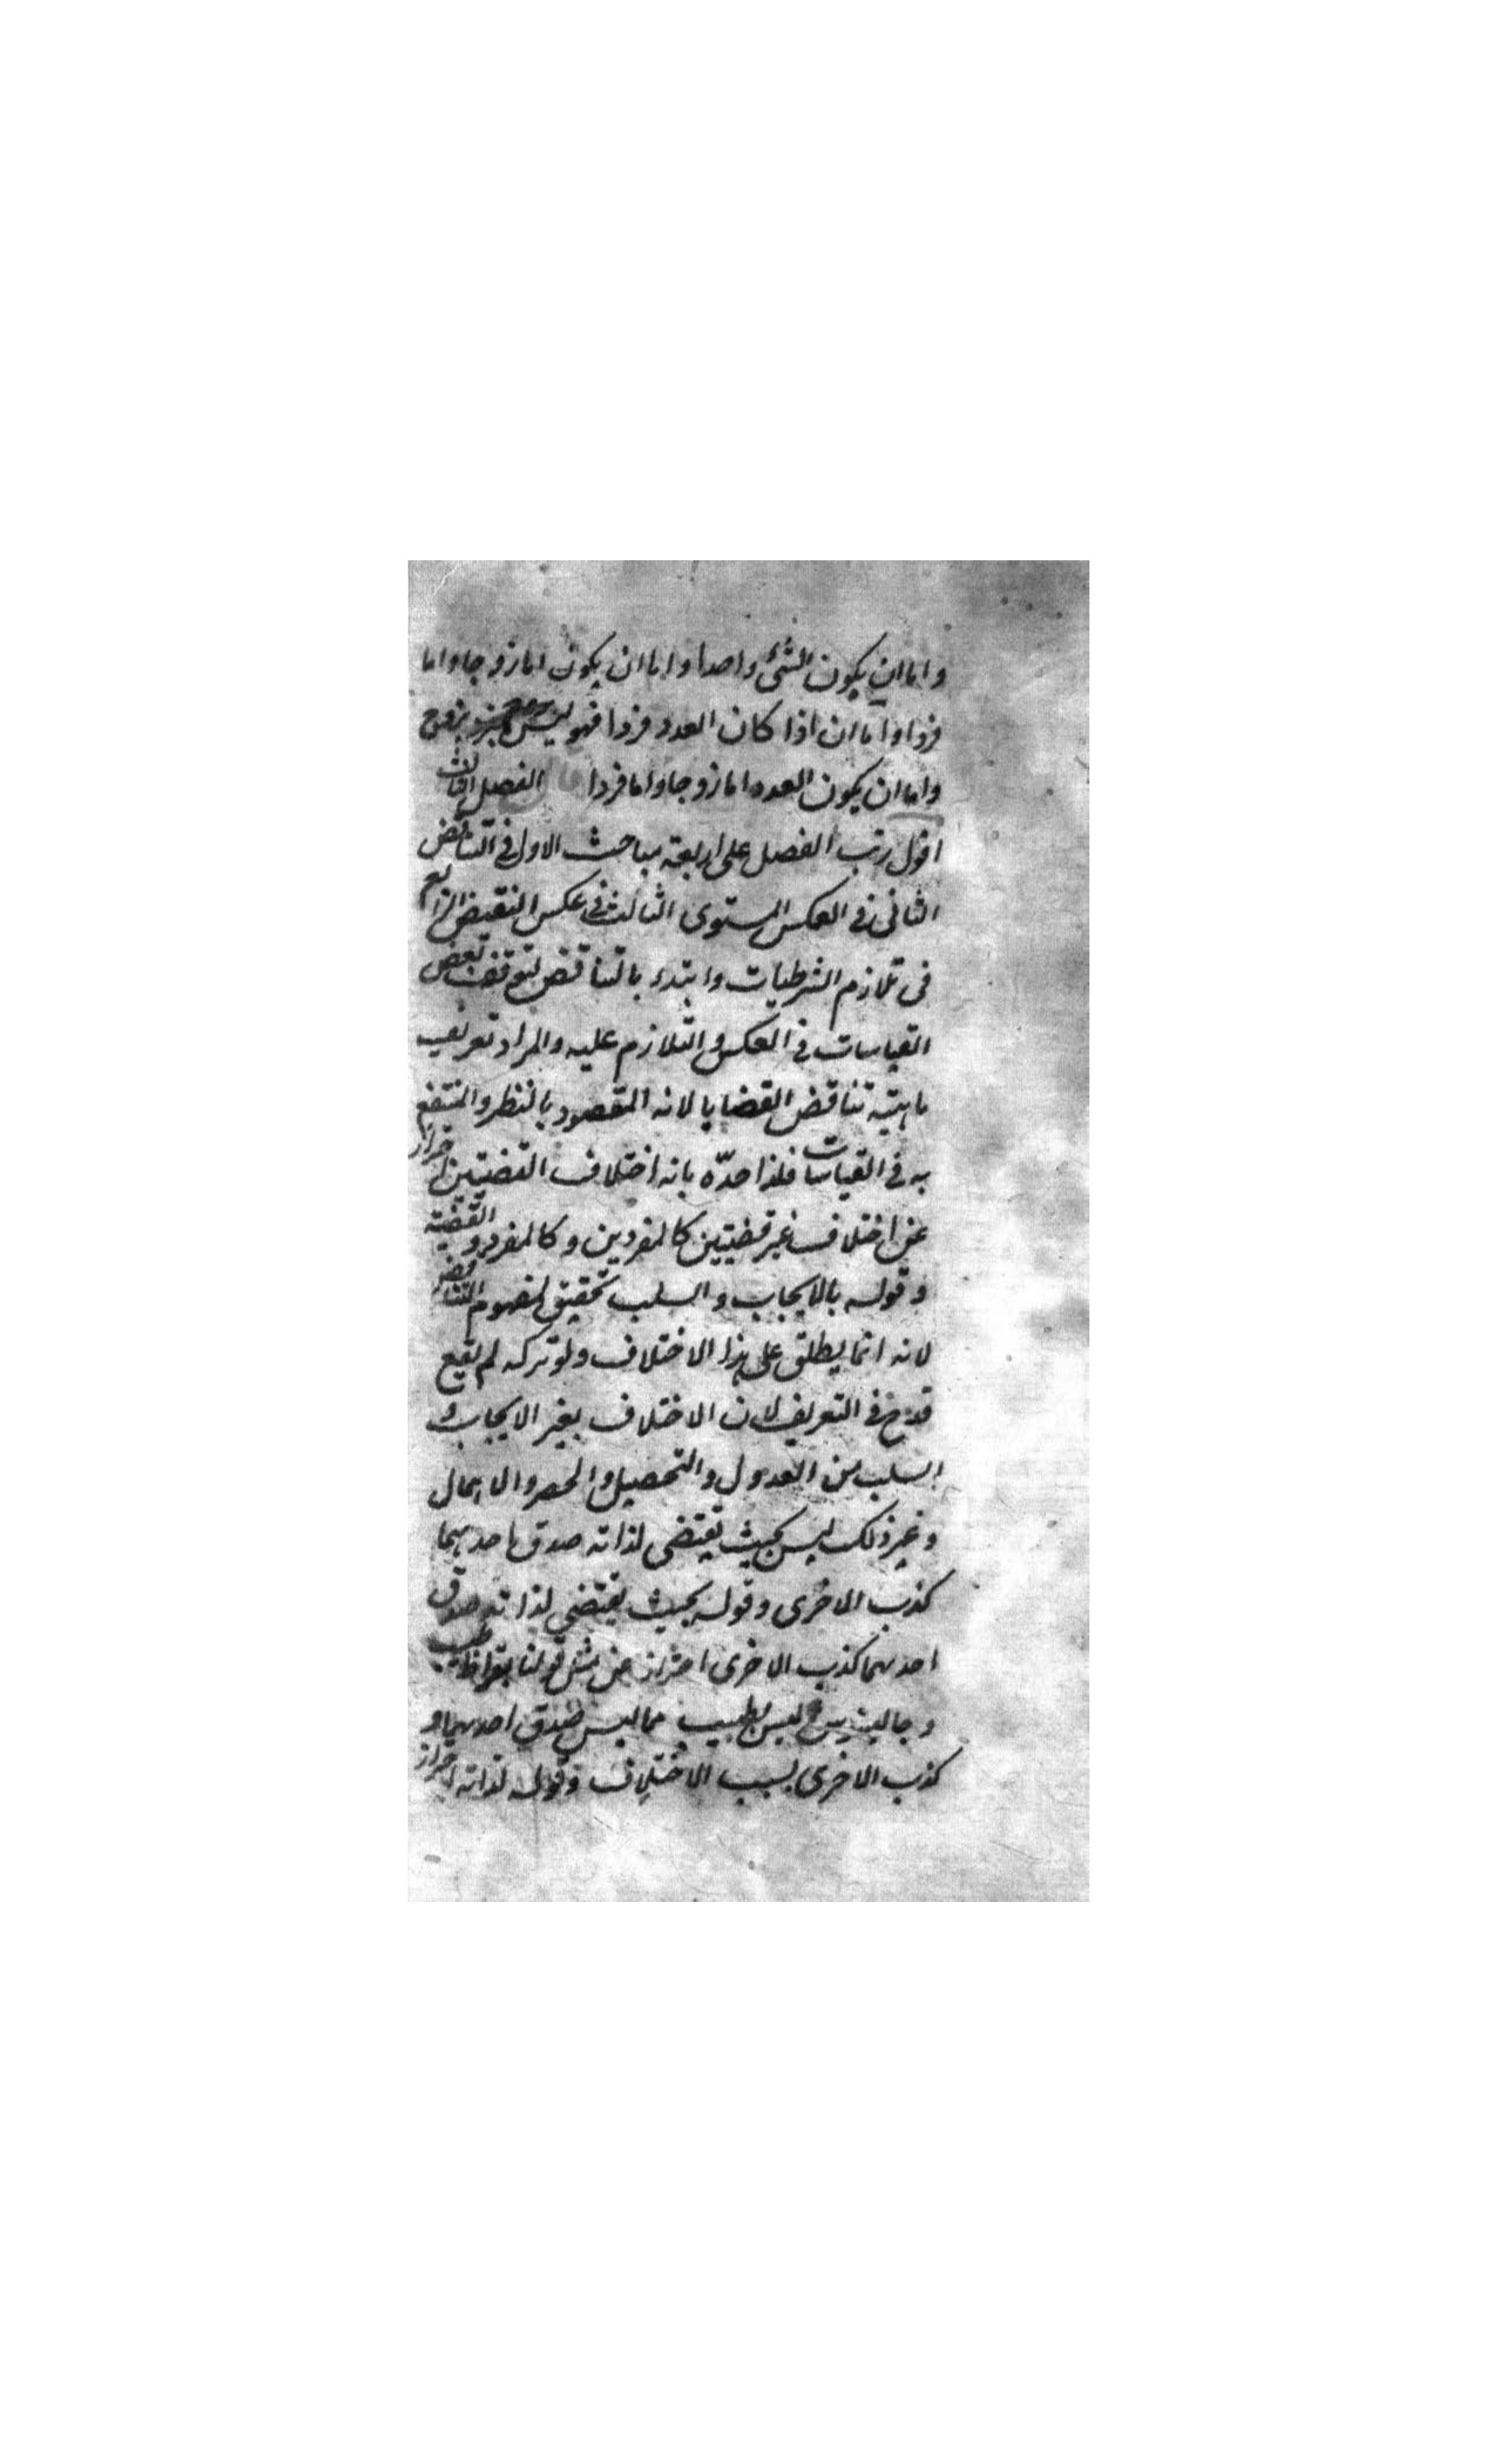 واما ان يكون الشئ واحدا واما ان يكون اما زوجا واما
فردا واما ان اذا كان العدد فردا فهو ليس بزوج
واما ان يكون العدد اما زوجا واما فردا الفصل الثالث
اقول رتب الفصل على اربعة مباحث الاول فى التناقض
الثانى فى العكس المستوى الثالث فى عكس النقيض الرابع
فى تلازم الشرطيات وابتدء بالتناقض لتوقف بعض
القياسات فى العكس والتلازم عليه والمراد تعريف
ماهية تناقض القضايا لانه المقصود بالنظر والمنتفع
به فى القياسات فلذا حدّه بانه اختلاف القضيتين احتراز
عن اختلاف غير قضيتين كالمفردين وكالمفرد والقضية
وقوله بالايجاب والسلب تحقيق لمفهوم التناقض
لانه انما يطلق على هذا الاختلاف ولو تركه لم يقع
قدح فى التعريف لان الاختلاف بغير الايجاب و
السلب من العدول والتحصيل والحصر والاهمال
وغير ذلك ليس بحيث يقتضى لذاته صدق احدهما
كذب الاخرى وقوله بحيث يقتضى لذاته صدق
احدهما كذب الاخرى احتراز عن مثل قولنا بقراط طبيب
وجالينوس ليس بطبيب مما ليس صدق احدهما و
كذب الاخرى بسبب الاختلاف وقوله لذاته احتراز